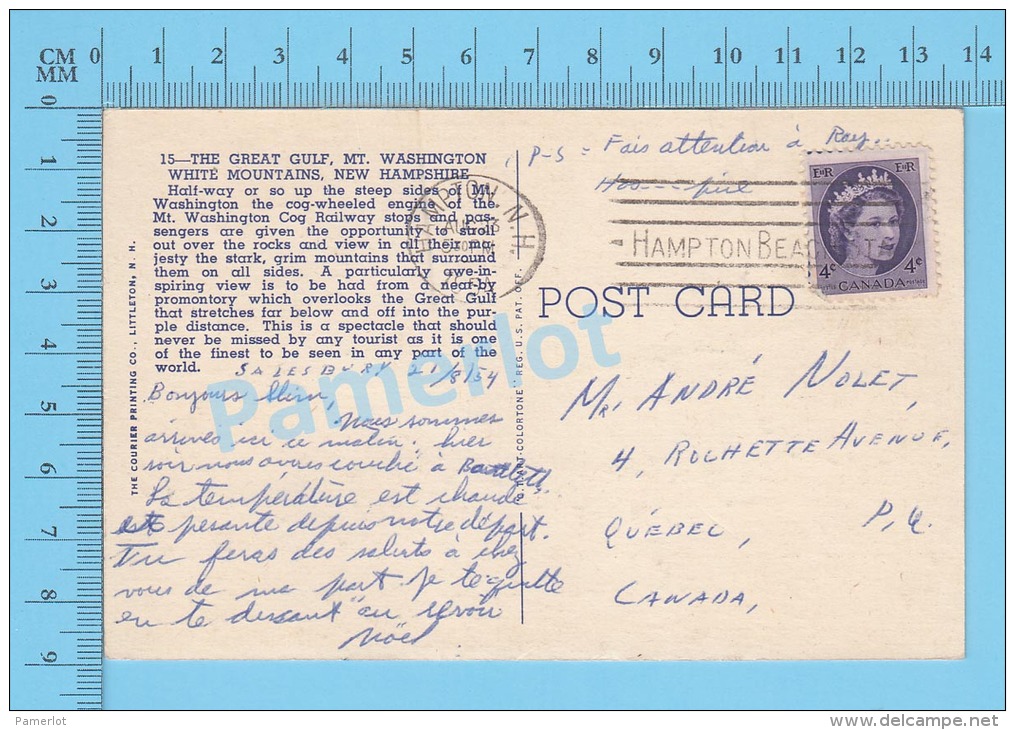 CM 0 1 2 3 4 5 6 7 8 9 10 11 12 13 14
MM
0
1
2
3
4
5
6
7
8
9
15—THE GREAT GULF, MT. WASHINGTON
WHITE MOUNTAINS, NEW HAMPSHIRE
Half-way or so up the steep sides of Mt.
Washington the cog-wheeled engine of the
Mt. Washington Cog Railway stops and pas-
sengers are given the opportunity to stroll
out over the rocks and view in all their ma-
jesty the stark, grim mountains that surround
them on all sides. A particularly awe-in-
spiring view is to be had from a near-by
promontory which overlooks the Great Gulf
that stretches far below and off into the pur-
ple distance. This is a spectacle that should
never be missed by any tourist as it is one
of the finest to be seen in any part of the
world.
SALESBURY 21/8/54
Bonjours
Nous sommes
arrivés ici ce matin. hier
soir nous avons couché à Bartlett.
La température est chaude
et pesante depuis notre départ.
Tu feras des saluts à chez
vous de ma part. Je te quitte
en te disant "au revoir
Noël
THE COURIER PRINTING CO., LITTLETON, N. H.
REG. U.S. PAT. OFF.
P-S = Fais attention à Ray..
HAMPTON N.H.
AUG 23
HAMPTON BEACH
EIIR EIIR
4¢ 4¢
CANADA
POST CARD
Mr. ANDRÉ NOLET,
4, ROCHETTE AVENUE,
QUÉBEC, P.Q.
CANADA,
Pamerlot
Pamerlot
delcampe.net